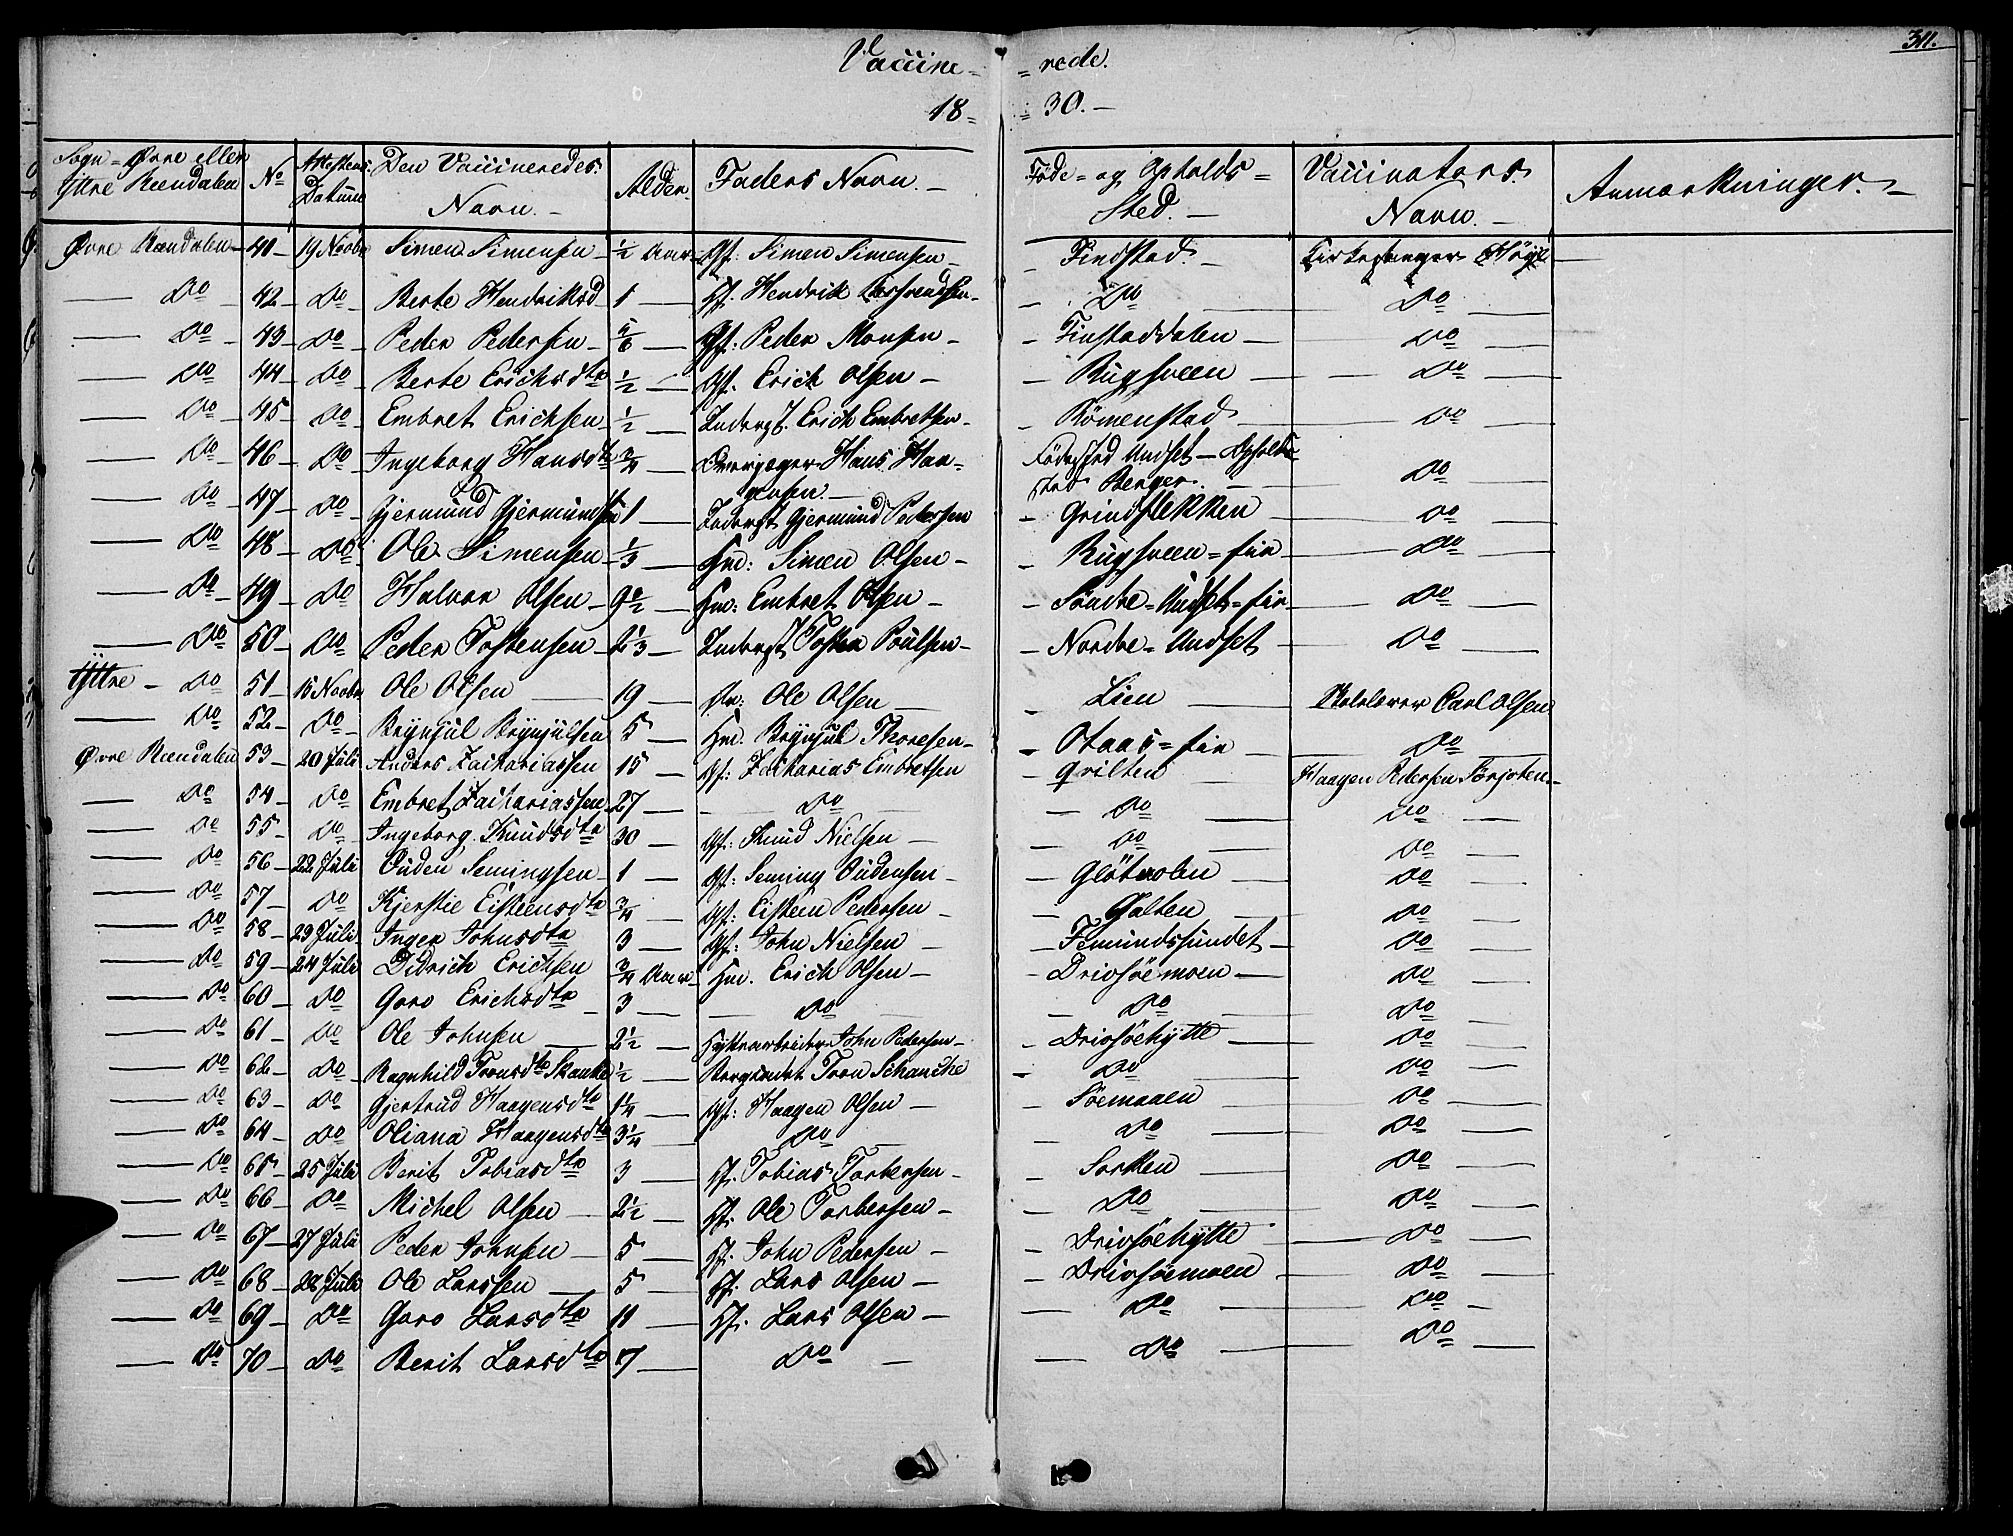 311.
Vaccine- -rede.
18- 30.-
Sogn = Øvre eller Yttre Rændalen | No | Attestens Datum | Den Vaccineredes Navn.- | Alder | Faders Navn.- | Føde- og Opholds- Sted.- | Vaccinators Navn.- | Anmærkninger.-
Øvre Rændalen 41 19 Novbr Simen Simensen ½ Aar Gf: Simen Simensen Findstad Kirkesanger Høye
Do 42 Do Berte Hendriksd 1 Hf. Hendrik Do Do
Do 43 Do Peder Pedersen Gf: Peder Monsen Finstaddalen Do
Do 44 Do Berte Erichsdtr ½ Gf. Erich Olsen Rugsveen Do
Do 45 Do Embret Erichsen ½ Inderstf. Erich Embretsen Rømenstad Do
Do 46 Do Ingeborg Hansdtr ¾ Overjæger Hans Haa-
gensen Fødested Undset - Opholds-
sted Berger. Do
Do 47 Do Gjermund Gjermundsen 1 Inderstf Gjermund Pedersen Grindflekken Do
Do 48 Do Ole Simensen ⅓ Hm: Simen Olsen Rugsveen=eie Do
Do 49 Do Halvor Olsen Hm: Embret Olsen Søndre=Undset=eie Do
Do 50 Do Peder Tostensen 2⅓ Inderstf Tosten Poulsen Nordre=Undset Do
Yttre Do 51 15 Novbr Ole Olsen 19 Ole Olsen Lien Skolelærer Carl Olsen
Do 52 Do Brynjul Brynjulsen 5 Hm. Brynjul Thoresen Otaas=eie Do
Øvre Rændalen 53 20 Juli Anders Zachariassen 15 Gf: Zacharias Embretsen Qvilten Haagen Pedersen
Do 54 Do Embret Zachariassen 27 Do Do Do
Do 55 Do Ingeborg Knudsdtr 30 Gf: Knud Nielsen Do Do
Do 56 22 Juli Ouden Semingsen 1 Gf: Seming Oudensen Gløtvolen Do
Do 57 Do Kjerstie Eisteensdtr ¾ Gf: Eisteen Pedersen Galten Do
Do 58 23 Juli Inger Johnsdtr 3 Gf: John Nielsen Femundssundet Do
Do 59 24 Juli Didrich Erichsen ¾ Aar Hm. Erich Olsen Drivsøemoen Do
Do 60 Do Goro Erichsdtr 3 Do Do Do
Do 61 Do Ole Johnsen 2½ Hyttearbeider John Pedersen Drivsøehytte Do
Do 62 Do Ragnhild Tronsdtr Skanke ½ Tron Schanche Do Do
Do 63 Do Gjertrud Haagensdtr 1¼ Gf: Haagen Olsen Søemoen Do
Do 64 Do Oliana Haagensdtr 3¼ Do Do Do
Do 65 25 Juli Berit Tobiasdtr 3 Hf. Tobias Torbersen Sorken Do
Do 66 Do Michel Olsen 2½ Hf. Ole Torbersen Do Do
Do 67 27 Juli Peder Johnsen 5 Hf. John Pedersen Drivsøehytte Do
Do 68 28 Juli Ole Larssen 5 Hf. Lars Olsen Drivsøemoen Do
Do 69 Do Goro Larsdtr 11 Hf. Lars Olsen Do Do
Do 70 Do Berit Larsdtr 17 Do Do Do